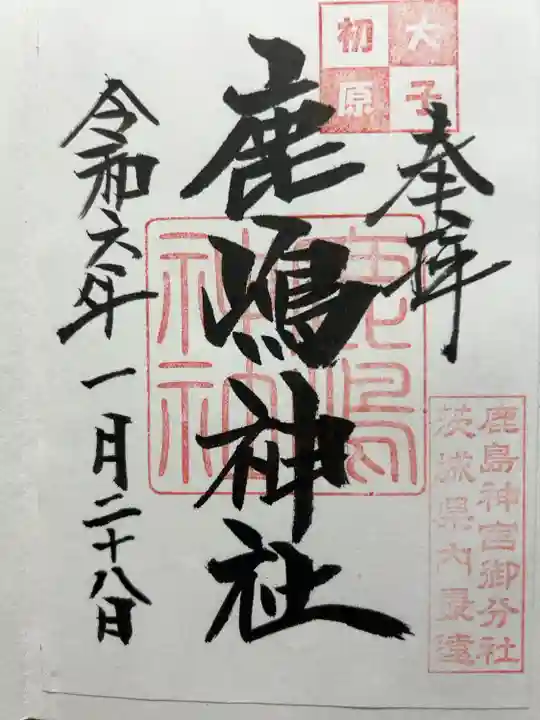 大子
初原
奉拝
鹿島神宮御分社
茨城県内最遠
鹿嶋神社
鹿嶋
神社
令和六年一月二十八日